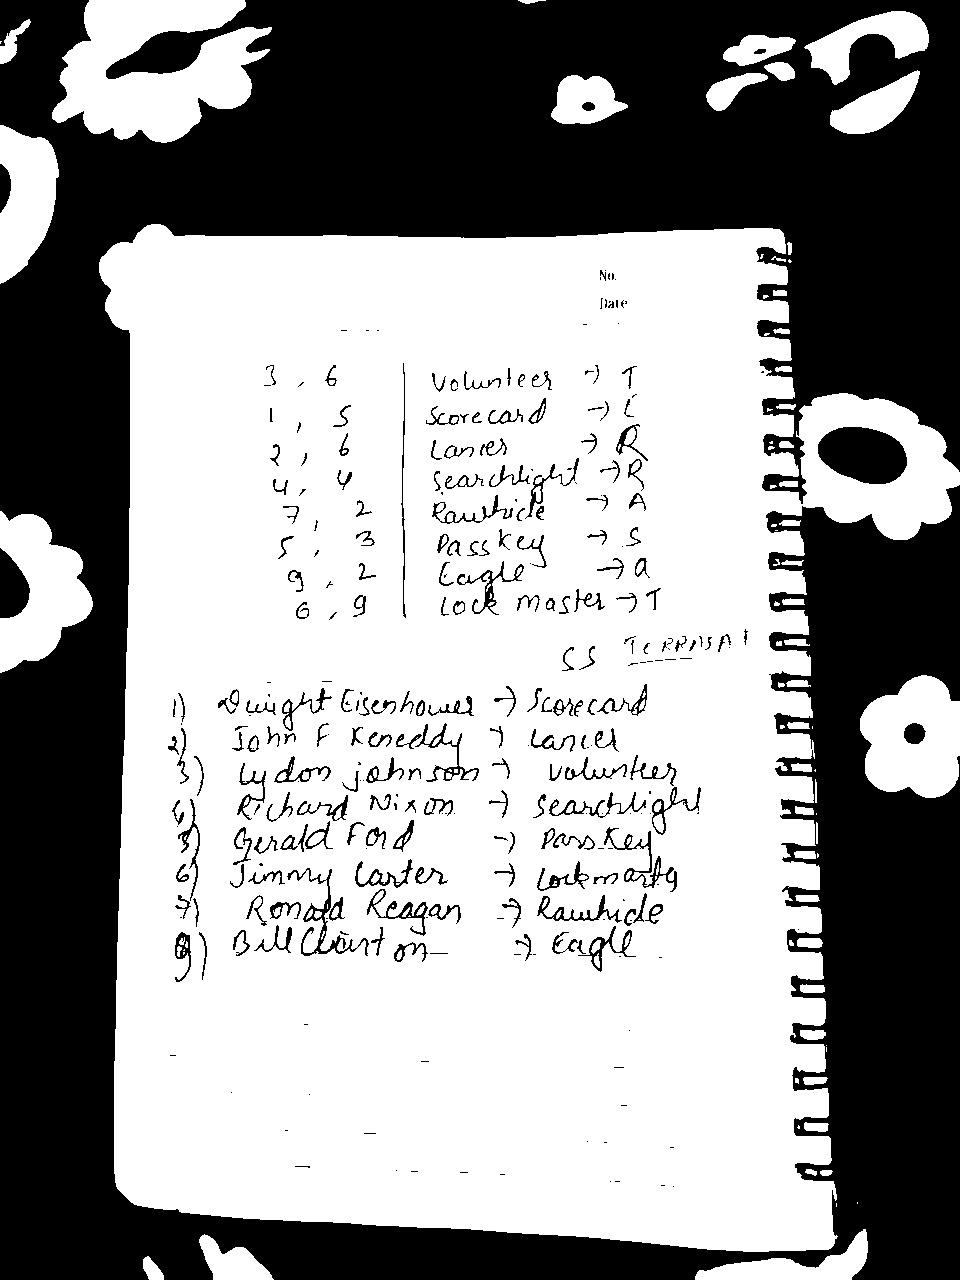 No.
Date
3, 6 | Volunteer → T
1, 5 | Scorecard → C
2, 6 | Lancer → R
4, 4 | Searchlight → R
7, 2 | Rawhide → A
5, 3 | Pass Key → S
9, 2 | Eagle → a
6, 9 | Lock master → T
SS
1) Dwight Eisenhower → Scorecard
2) John F Keneddy → Lancer
3) Lydon johnson → Volunteer
4) Richard Nixon → Searchlight
5) Gerald Ford → Pass Key
6) Jimmy Carter →
7) Ronald Reagan → Rawhide
9) Bill Clinton → Eagle